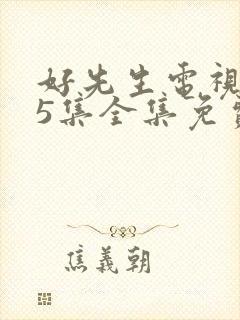 好先生電視
5集全集免費
焦義朝